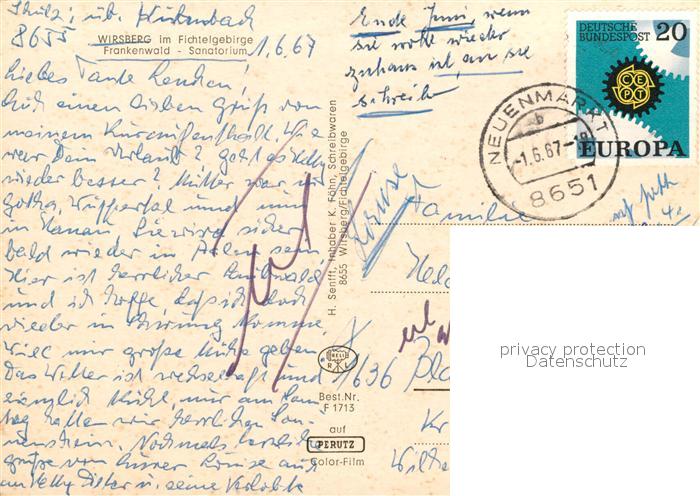 Schulz; üb. Kulmbach
8655
WIRSBERG im Fichtelgebirge
Frankenwald - Sanatorium
1.6.67
Liebes Tante Lenchen!
einen lieben Gruß von
meinem Kuraufenthalt. Wie
war Dein Urlaub? geht es Nelly
wieder besser? Mutter war in
Gotha, Wuppertal und nun
in Hanau. Sie wird sicher
bald wieder in Aalen sein.
Hier ist herrlicher
und ich hoffe, daß ich doch
wieder in Ordnung komme,
will mir große Mühe geben.
Das Wetter ist wechselhaft und
ziemlich kühl nur am Sonn
tag hatten wir herrlichen Son-
nenschein. Nochmals herzliche
Grüße von Eurer Louise auch
an Nelly Dieter u. seine Verlobte
Ende Juni, wenn
sie wollte wieder
zuhaus ist, an sie
schreiben
Louise
DEUTSCHE
BUNDESPOST
20
CEPT
EUROPA
NEUENMARKT
b
-1.6.67-
8651
Familie
1636
Kr
H. Senfft, Inhaber K. Föhn, Schreibwaren
8655 Wirsberg/Fichtelgebirge
Best.Nr.
F 1713
auf
PERUTZ
Color-Film
privacy protection
Datenschutz